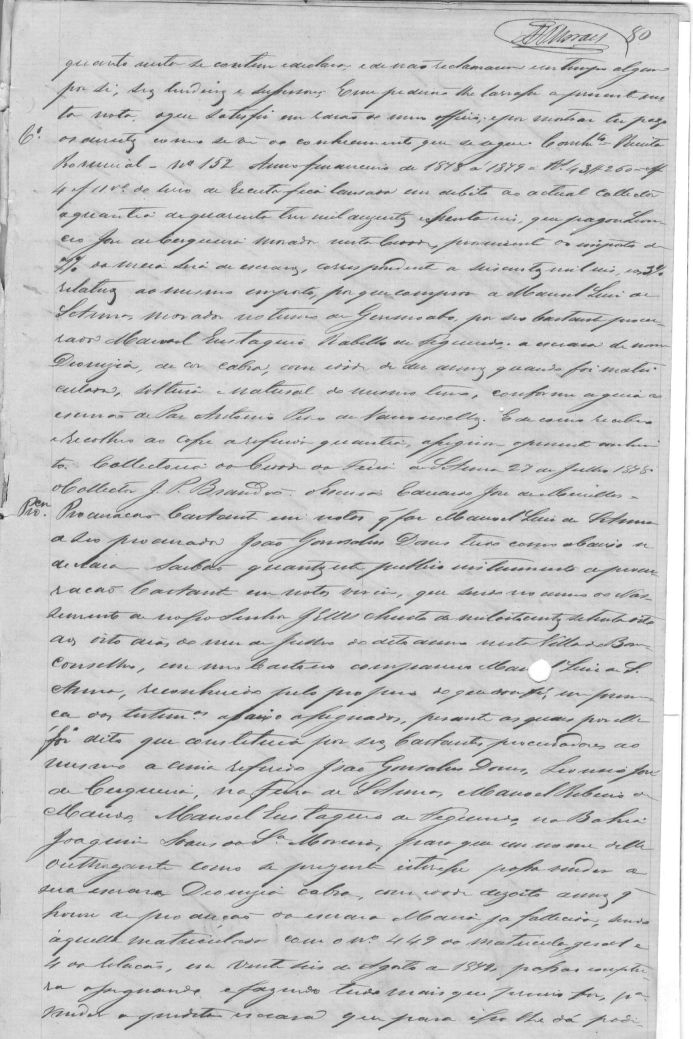 80
quanto nesta se contem e declara, e de não reclamarem em tempo algum
por si, seus herdeiros e successores. E me pedirão lhe lavrasse a presente nes
ta nota, o que satisfiz em razão de meu officio; e por mostrar ter pago
os direitos como se vê do conhecimento que se segue. Receita
Provincial - nº 152 Anno financeiro de 1878 a 1879
4 do livro de Receita fica lançada em debito ao actual Collector
a quantia de quarenta tres mil duzentos e reis, que pagou Leon
cio José de Cerqueira morador nesta Cidade, proveniente do imposto de
da meia siza de escravos, correspondente a seiscentos mil reis,
relativos ao mesmo imposto, por que comprou a Manoel Luis de
Sant'Anna, morador no termo de Geremoabo, por seu bastante procu
rador Manoel Eustaquio de Figueiredo, a escrava de nome
Dionizia, de cor cabra, com idade de dez annos quando foi matri
culada, solteira e natural do mesmo termo, conforme a guia do
escrivão de Paz Antonio Pires de Vasconcellos. E de como recebeu
e recolheu ao cofre a referida quantia, assignou o presente conheci
to. Collectoria da Cidade da Feira de Sant'Anna 27 de Julho 1878.
O Collector J. P. Brandão. O Escrivão Eduardo José de Meirelles -
Procuração bastante em notas q' faz Manoel Luis de Sant'Anna
a seu procurador João Gonsalves Dores tudo como abaixo se
declara Saibão quantos este publico instrumento de procu
ração bastante em notas virem, que sendo no anno do Nas
cimento de Nosso Senhor JESUS Christo de mil oitocentos setenta oito
aos oito dias do mez de Julho do dito anno nesta Villa do Bom
Conselho, em meu Cartorio compareceu Manoel Luis de S.
Anna, reconhecido pelo proprio do que dou fé, em presen
ça das testemas abaixo assignadas, perante as quais por elle
foi dito que constituia por seus bastantes procuradores ao
mesmo acima referido João Gonsalves Dores, Leoncio José
de Cerqueira, na Feira de Sant'Anna, Manoel Ribeiro de
Macedo, Manoel Eustaquio de Figueiredo, na Bahia
Joaquim da Sa Moreira, para que em nome delle
outhorgante como se prezente estivesse possa vender a
sua escrava Dionizia cabra, com idade dezoito annos q'
houve de producção da escrava Maria ja fallecida, sendo
aquella matriculada com o nº 449 da matricula geral e
4 da relação, em vinte seis de Agosto de 1872, passar escriptu
ra assignando e fazendo tudo mais que preciso for, pa
vender a predita escrava que para isso lhe dá pode